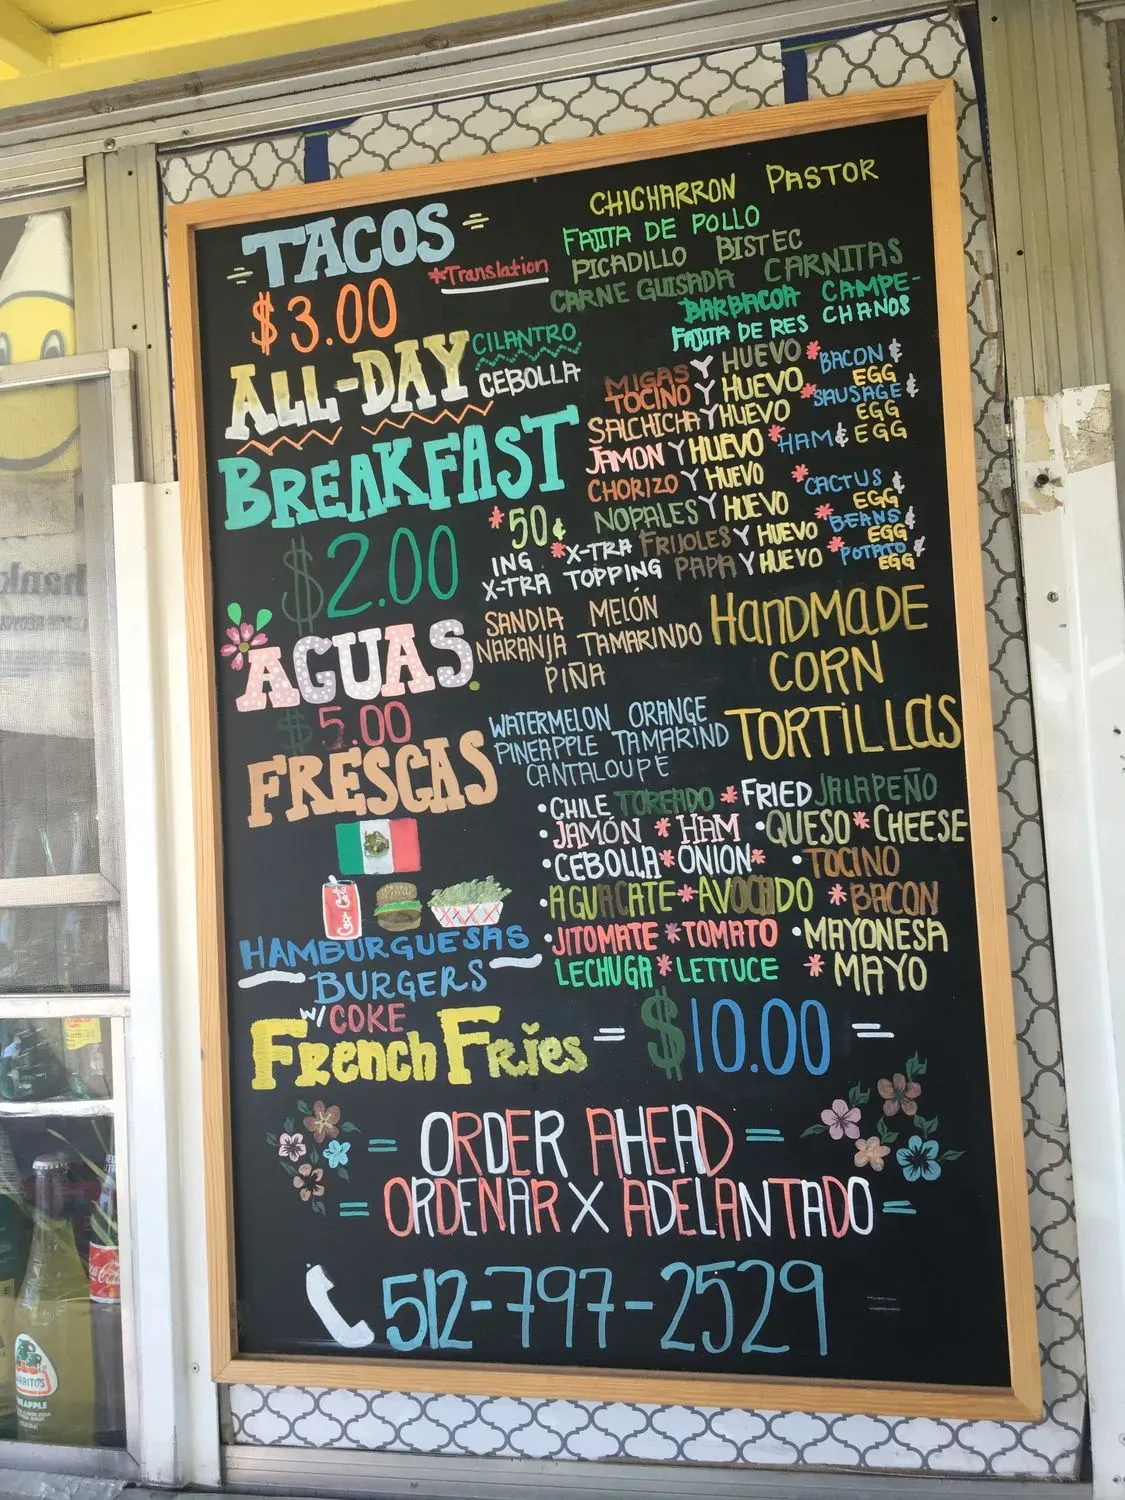 TACOS
*Translation
$3.00
CHICHARRON PASTOR
FAJITA DE POLLO
PICADILLO BISTEC
CARNE GUISADA CARNITAS
BARBACOA CAMPE-
FAJITA DE RES CHANOS
ALL-DAY
CILANTRO
CEBOLLA
BREAKFAST
$2.00
*50¢
ING *X-TRA
X-TRA TOPPING
MIGAS Y HUEVO *BACON &
EGG
TOCINO Y HUEVO *SAUSAGE &
EGG
SALCHICHA Y HUEVO
JAMON Y HUEVO *HAM & EGG
CHORIZO Y HUEVO
NOPALES Y HUEVO *CACTUS &
EGG
FRIJOLES Y HUEVO *BEANS &
EGG
PAPA Y HUEVO *POTATO &
EGG
AGUAS
$5.00
FRESCAS
SANDIA MELÓN
NARANJA TAMARINDO
PIÑA
WATERMELON ORANGE
PINEAPPLE TAMARIND
CANTALOUPE
HANDMADE
CORN
TORTILLAS
•CHILE TOREADO *FRIED JALAPEÑO
•JAMÓN *HAM •QUESO*CHEESE
•CEBOLLA*ONION* •TOCINO
•AGUACATE*AVOCADO *BACON
•JITOMATE*TOMATO •MAYONESA
LECHUGA*LETTUCE *MAYO
HAMBURGUESAS
BURGERS
W/ COKE
French Fries = $10.00 =
= ORDER AHEAD =
= ORDENAR X ADELANTADO =
512-797-2529
Coca-Cola
JARRITOS
PINEAPPLE